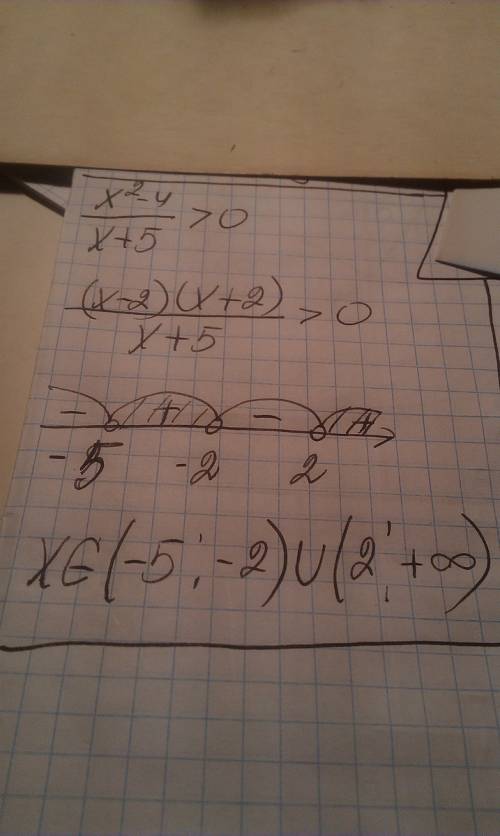 x²-4 / x+5 > 0
(x-2)(x+2) / x+5 > 0
- + - +
-5 -2 2
x∈(-5; -2)∪(2; +∞)